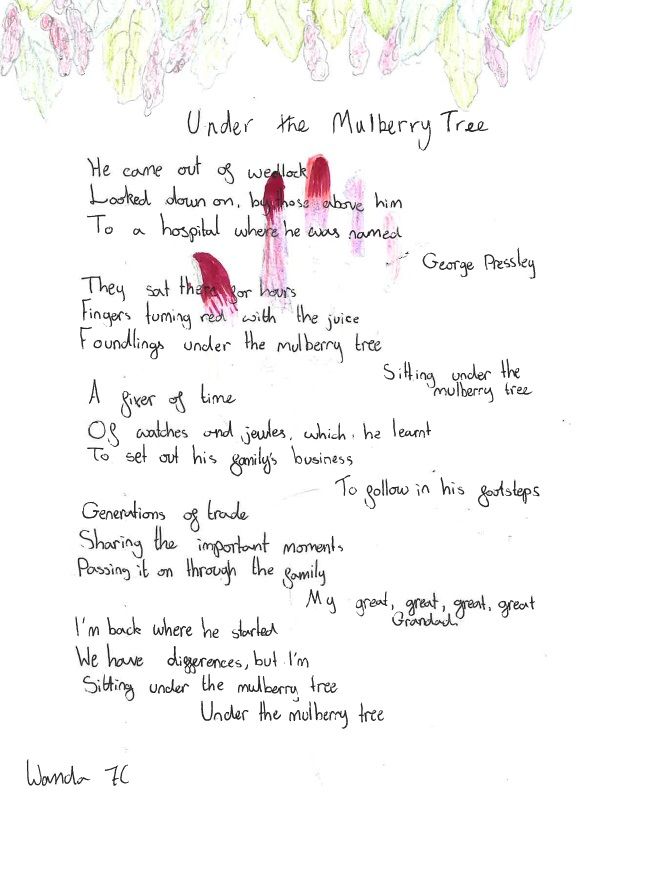 Under the Mulberry Tree
He came out of wedlock
Looked down on, by those above him
To a hospital where he was named
George Pressley
They sat there for hours
Fingers turning red with the juice
Foundlings under the mulberry tree
Sitting under the
mulberry tree
A fixer of time
Of watches and jewles, which he learnt
To set out his family's business
To follow in his footsteps
Generations of trade
Sharing the important moments
Passing it on through the family
My great, great, great, great
Grandad.
I'm back where he started
We have differences, but I'm
Sitting under the mulberry tree
Under the mulberry tree
Wanda 7C